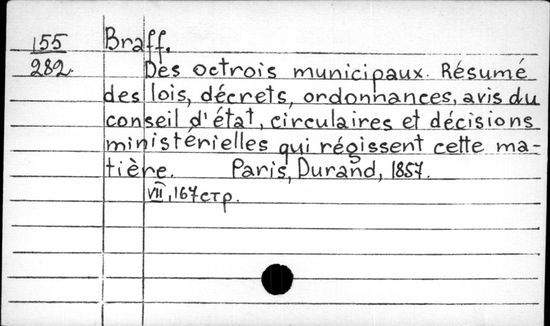 155
282.
Braff.
Des octrois municipaux. Résumé
des lois, décrets, ordonnances, avis du
conseil d'état, circulaires et décisions
ministérielles qui régissent cette ma-
tière. Paris, Durand, 1857.
VII, 167 стр.